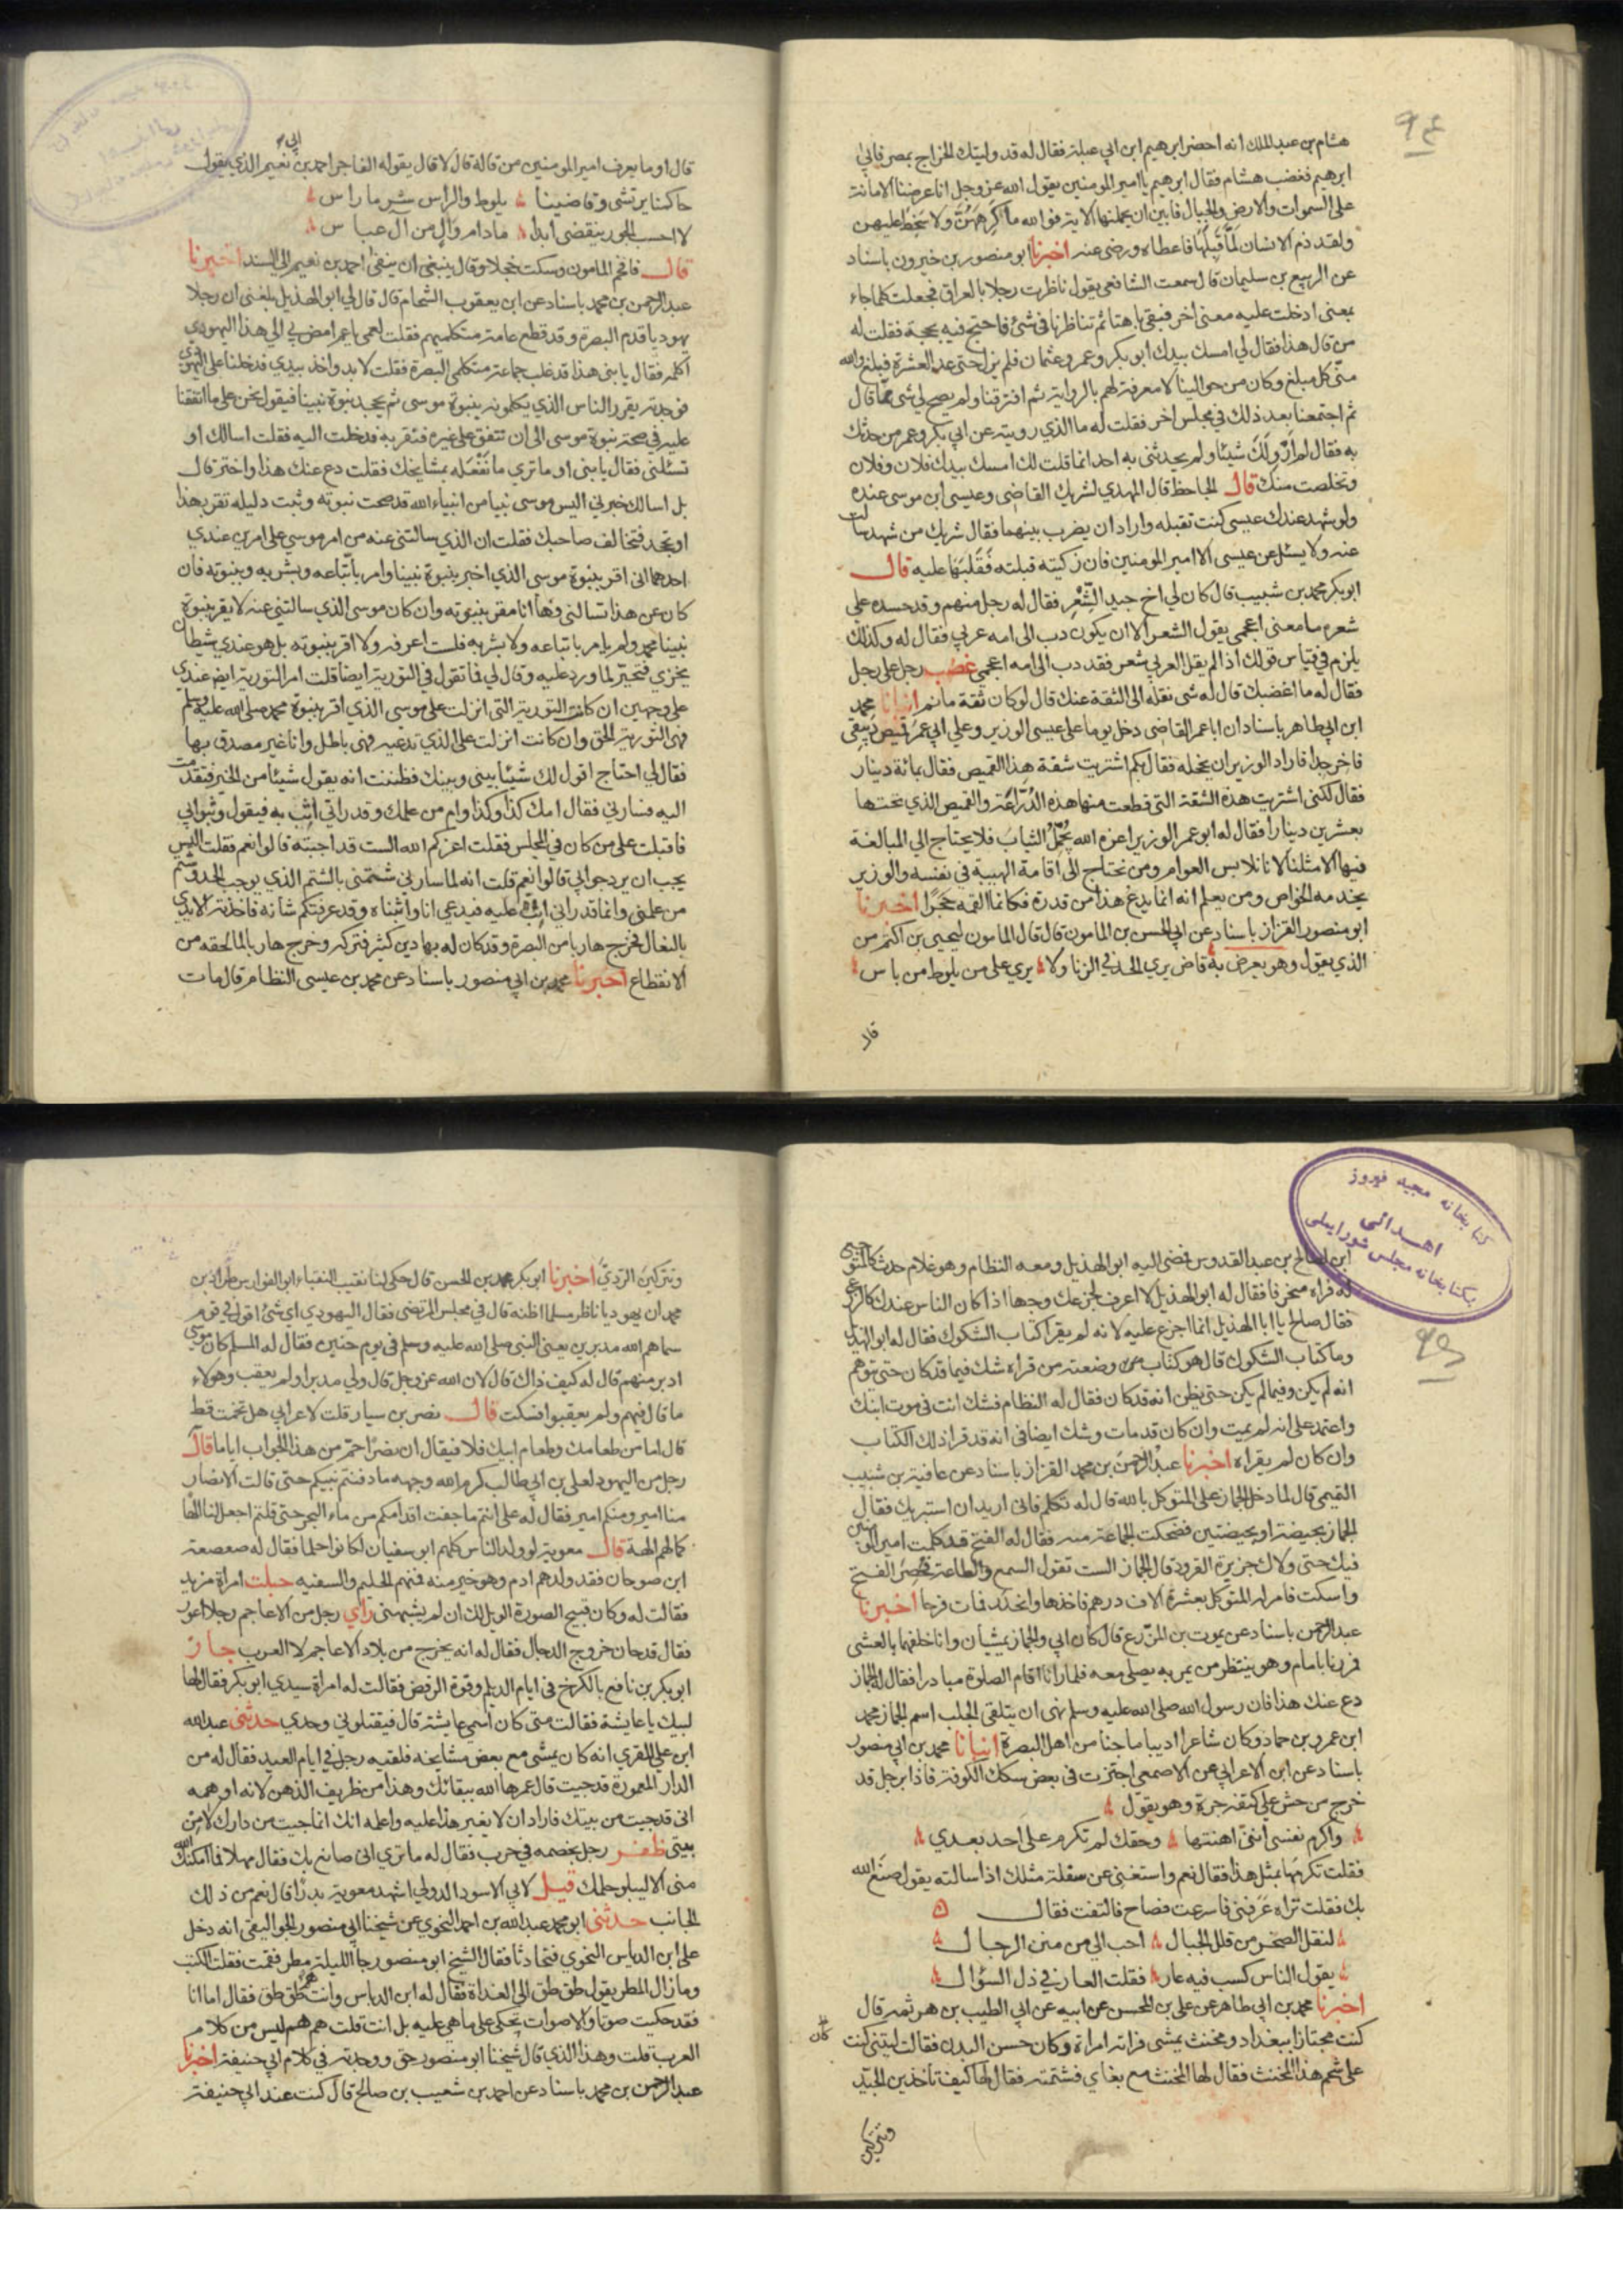 هشام بن عبد الملك انه احضر ابرهيم ابن ابي عبلة فقال له قد وليتك الخراج بمصر فابى
ابرهيم فغضب هشام فقال ابرهيم يا امير المومنين يقول الله عز وجل انا عرضنا الامانة
على السموات والارض والجبال فابين ان يحملنها الاية فوالله ما اكرههن ولا سخط عليهن
ولقد ذم الانسان لما قبلها فاعطاه ورضى عنه اخبرنا ابو منصور بن خيرون باسناد
عن الربيع بن سليمان قال سمعت الشافعي يقول ناظرت رجلا بالعراق فجعلت كلما جاء
بمعنى ادخلت عليه معنى اخر فبقى باهتا ثم تناظرنا في شئ فاحتج فيه بحجة فقلت له
من قال هذا فقال لي امسك بيدك ابو بكر وعمر وعثمان فلم يزل حتى عد العشرة فبلغ والله
منى كل مبلغ وكان من حوالينا لا معرفة لهم بالرواية ثم افترقنا ولم يصح لي شئ مما قال
ثم اجتمعنا بعد ذلك في مجلس اخر فقلت له ما الذي رويته عن ابي بكر وعمر من حدثك
به فقال لم ارو لك شيئا ولم يحدثنى به احد انما قلت لك امسك بيدك فلان وفلان
وتخلصت منك قال الجاحظ قال المهدي لشريك القاضي وعيسى ابن موسى عنده
ولو شهد عندك عيسى كنت تقبله واراد ان يضرب بينهما فقال شريك من شهد سالت
عنه ولا يسئل عن عيسى الا امير المومنين فان زكيته قبلته فقلبها عليه قال
ابو بكر محمد بن شبيب قال كان لي اخ جيد الشعر فقال له رجل منهم وقد حسده على
شعره ما معنى اعجمى يقول الشعر الا ان يكون دب الى امه عربي فقال له وكذلك
يلزم في قياس قولك اذا لم يقل العربي شعر فقد دب الى امه اعجمي غضب رجل على رجل
فقال له ما اغضبك قال له شى نقله الى الثقة عنك قال لو كان ثقة ما نم انبانا محمد
ابن ابي طاهر باسناد ان ابا عمر القاضى دخل يوما على عيسى الوزير وعلى ابي عمر قميص دبيقى
فاخر جدا فاراد الوزير ان يخجله فقال بكم اشتريت شقة هذا القميص فقال بمائة دينار
فقال لكنى اشتريت هذه الشقة التى قطعت منها هذه الدراعة والقميص الذي تحتها
بعشرين دينارا فقال له ابو عمر الوزير اعزه الله يجمل الثياب فلا يحتاج الى المبالغة
فيها الا مثلنا لانا نلابس العوام ومن نحتاج الى اقامة الهيبة في نفسه والوزير
يخدمه الخواص ومن يعلم انه انما يدع هذا من قدرة فكانما القمه حجرا اخبرنا
ابو منصور القزاز باسناد عن ابي الحسن بن المامون قال قال المامون ليحيى بن اكثم من
الذي يقول وهو يعرض به قاض يرى الحد في الزنا ولا يرى على من يلوط من باس
قال
قال او ما يعرف امير المومنين من قاله قال لا قال يقوله الفاجر احمد بن ابي نعيم الذي يقول
حاكمنا يرتشى وقاضينا يلوط والراس شر ما راس
لا احسب الجور ينقضى ابدا مادام وال من آل عباس
قال فافحم المامون وسكت خجلا وقال ينبغى ان ينفى احمد بن نعيم الى السند اخبرنا
عبد الرحمن بن محمد باسناد عن ابى يعقوب الشحام قال قال لي ابو الهذيل بلغنى ان رجلا
يهوديا قدم البصرة وقد قطع عامة متكلميهم فقلت لعمى يا عم امض بي الى هذا اليهودي
اكلمه فقال يا بنى هذا قد غلب جماعة متكلمى البصرة فقلت لا بد واخذ بيدي فدخلنا على اليهودي
فوجدته يقرر الناس الذي يكلمونه بنبوة موسى ثم يجحد نبوة نبينا فيقول نحن على ما اتفقنا
عليه في صحة نبوة موسى الى ان نتفق على غيره فنقر به فدخلت اليه فقلت اسالك او
تسئلنى فقال يا بنى او ما ترى ما نفعله بمشايخك فقلت دع عنك هذا واختر قال
بل اسالك خبرني اليس موسى نبيا من انبياء الله قد صحت نبوته وثبت دليله تقر بهذا
او تجحد فتخالف صاحبك فقلت ان الذي سالتنى عنه من امر موسى على امرين عندي
احدهما انى اقر بنبوة موسى الذي اخبر بنبوة نبينا وامر باتباعه وبشر به وبنبوته فان
كان عن هذا تسالنى فها انا مقر بنبوته وان كان موسى الذي سالتنى عنه لا يقر بنبوة
نبينا محمد ولم يامر باتباعه ولا بشر به فلست اعرفه ولا اقر بنبوته بل هو عندي شيطان
يخزي فتحير لما ورد عليه وقال لي فما تقول في التورية ايضا قلت امر التورية ايضا عندي
على وجهين ان كانت التورية التى انزلت على موسى الذي اقر بنبوة محمد صلى الله عليه وسلم
فهى التورية الحق وان كانت انزلت على الذي تدعيه فهى باطل وانا غير مصدق بها
فقال لي احتاج اقول لك شيئا بينى وبينك فظننت انه يقول شيئا من الخير فتقدمت
اليه فسارني فقال امك كذا وكذا وام من علمك وقدر اني اثب به فيقول وثبوا بي
فاقبلت على من كان في المجلس فقلت اعزكم الله الست قد اجبته قالوا نعم فقلت اليس
يجب ان يرد جوابي قالوا نعم قلت انه لما سارني شتمنى بالشتم الذي يوجب الحد وشتم
من علمنى وانما قدر اني اثب عليه فيدعي انا واثبناه وقد عرفتكم شأنه فاخذته الايدي
بالنعال فخرج هاربا من البصرة وقد كان له بها دين كثير فتركه وخرج هاربا لما لحقه من
الانقطاع اخبرنا محمد بن ابي منصور باسناد عن محمد بن عيسى النظام قال مات
كتابخانه مجيد فيروز
اهدائى
بكتابخانه مجلس شورايملى
ابن لصالح بن عبد القدوس فمضى اليه ابو الهذيل ومعه النظام وهو غلام حدث كالمتوجع
له فراه منحرفا فقال له ابو الهذيل لا اعرف لجزعك وجها اذا كان الناس عندك كالزرع
فقال صالح يا ابا الهذيل انما اجزع عليه لانه لم يقرا كتاب الشكوك فقال له ابو الهذيل
وما كتاب الشكوك قال هو كتاب وضعته من قراه شك فيما قد كان حتى يتوهم
انه لم يكن وفيما لم يكن حتى يظن انه قد كان فقال له النظام فشك انت في موت ابنك
واعتمد على انه لم يمت وان كان قد مات وشك ايضا في انه قد قرا ذلك الكتاب
وان كان لم يقراه اخبرنا عبد الرحمن بن محمد القزاز باسناد عن عافية بن شبيب
التميمى قال لما دخل الجماز على المتوكل بالله قال له تكلم فانى اريد ان استبريك فقال
الجماز بحيضة او بحيضتين فضحكت الجماعة منه فقال له الفتح قد كلمت امير المومنين
فيك حتى ولاك جزيرة القرود قال الجماز الست تقول السمع والطاعة فحصر الفتح
واسكت فامر له المتوكل بعشرة الاف درهم فاخذها وانحدر فمات فرحا اخبرنا
عبد الرحمن باسناد عن يموت بن المزرع قال كان ابي والجماز يمشيان وانا خلفهما بالعشى
فمررنا بامام وهو ينتظر من يمر به يصلى معه فلما رانا اقام الصلوة مبادرا فقال له الجماز
دع عنك هذا فان رسول الله صلى الله عليه وسلم نهى ان يتلقى الجلب اسم الجماز محمد
ابن عمرو بن حماد وكان شاعرا اديبا ماجنا من اهل البصرة انبانا محمد بن ابي منصور
باسناد عن ابن الاعرابي عن الاصمعي اجتزت في بعض سكك الكوفة فاذا برجل قد
خرج من حش على كتفه جرة وهو يقول
واكرم نفسى اننى اهنتها وحقك لم تكرم على احد بعدي
فقلت تكرمها بمثل هذا فقال نعم واستغنى عن سفلة مثلك اذا سالته يقول صنع الله
بك فقلت تراه عرفنى فاسرعت فصاح فالتفت فقال
لنقل الصخر من قلل الجبال احب الي من منن الرجال
يقول الناس كسب فيه عار فقلت العار في ذل السؤال
اخبرنا محمد بن ابي طاهر عن على بن المحسن عن ابيه عن ابي الطيب بن هرثمة قال
كنت مجتازا ببغداد ومخنث يمشى فراته امراة وكان حسن البدن فقالت ليتنى كنت
على شحم هذا المخنث فقال لها المخنث مع بغاي فشتمته فقال لها كيف تاخذين الجيد
وتتركين
وتتركين الردي اخبرنا ابو بكر محمد بن الحسن قال حكى لنا نقيب النقباء ابو الفوارس طراد بن
محمد ان يهوديا ناظر مسلما اظنه قال في مجلس المرتضى فقال اليهودي اي شئ اقول في قوم
سماهم الله مدبرين يعنى النبى صلى الله عليه وسلم في يوم حنين فقال له المسلم كان موسى
ادبر منهم قال له كيف ذاك قال لان الله عز وجل قال ولى مدبرا ولم يعقب وهولاء
ما قال فيهم ولم يعقبوا فسكت قال نصر بن سيار قلت لاعرابي هل تخمت قط
قال اما من طعامك وطعام ابيك فلا فيقال ان نصرا حم من هذا الجواب اياما قال
رجل من اليهود لعلى بن ابي طالب كرم الله وجهه ما دفنتم نبيكم حتى قالت الانصار
منا امير ومنكم امير فقال له على انتم ما جفت اقدامكم من ماء البحر حتى قلتم اجعل لنا الها
كما لهم الهة قال معوية لو ولد الناس كلهم ابو سفيان لكانوا حلما فقال له صعصعة
ابن صوحان فقد ولدهم ادم وهو خير منه فمنهم الحليم والسفيه حبلت امراة مزبد
فقالت له وكان قبيح الصورة الويل لك ان لم يشبهنى راي رجل من الاعاجم رجلا اعور
فقال قد حان خروج الدجال فقال له انه يخرج من بلاد الاعاجم لا العرب جاز
ابو بكر بن نافع بالكرخ في ايام الديلم وقوة الرفض فقالت له امراة سيدي ابو بكر فقال لها
لبيك يا عايشة فقالت متى كان اسمي عايشة قال فيقتلوني وحدي حدثنى عبد الله
ابن على المقري انه كان يمشى مع بعض مشايخه فلقيه رجل في ايام العيد فقال له من
الدار المعمورة قد جيت قال عمرها الله ببقائك وهذا من ظريف الذهن لانه اوهمه
انى قد جيت من بيتك فاراد ان لا يغير هذا عليه واعلمه انك انما جيت من دارك لا من
بيتى ظفر رجل بخصمه في حرب فقال له ما ترى انى صانع بك فقال مهلا فما امكنك الله
منى الا ليبلو حلمك قيل لابي الاسود الدولي اشهد معوية بدرا قال نعم من ذلك
الجانب حدثنى ابو محمد عبد الله بن احمد النحوي عن شيخنا ابي منصور الجواليقى انه دخل
على ابن الدباس النحوي فتحادثا فقال الشيخ ابو منصور جا الليلة مطر فقمت فقلت الكتب
وما زال المطر يقول طق طق الى الغداة فقال له ابن الدباس وانت طق طق فقال اما انا
فقد حكيت صوتا والاصوات تحكى على ما هي عليه بل انت قلت هم هم ليس من كلام
العرب قلت وهذا الذي قال شيخنا ابو منصور حق ووجدته في كلام ابي حنيفة اخبرنا
عبد الرحمن بن محمد باسناد عن احمد بن شعيب بن صالح قال كنت عند ابي حنيفة